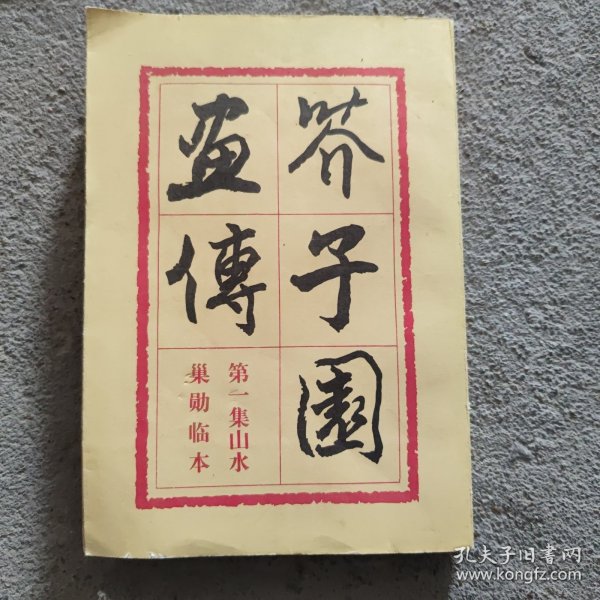 芥子園
畫傳
第一集山水
巢勋临本
孔夫子旧書网
www.kongfz.com